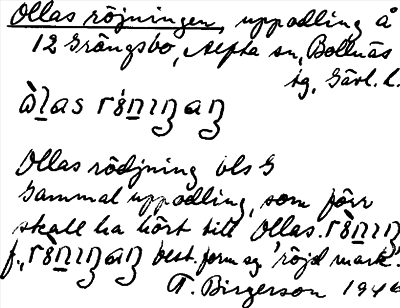 Ollas röjningen, uppodling å
12 Grängsbo, Alfta sn, Bollnäs
tg, Gävl. l.
ò̀l̲as rö́n̲ɪŋaŋ
Ollas rödjning ols G
Gammal uppodling, som förr
skall ha hört till Ollas. rö̀n̲ɪŋ
f., rö̀n̲ɪŋaŋ best. form sg 'röjd mark'.
T. Birgerson 1946